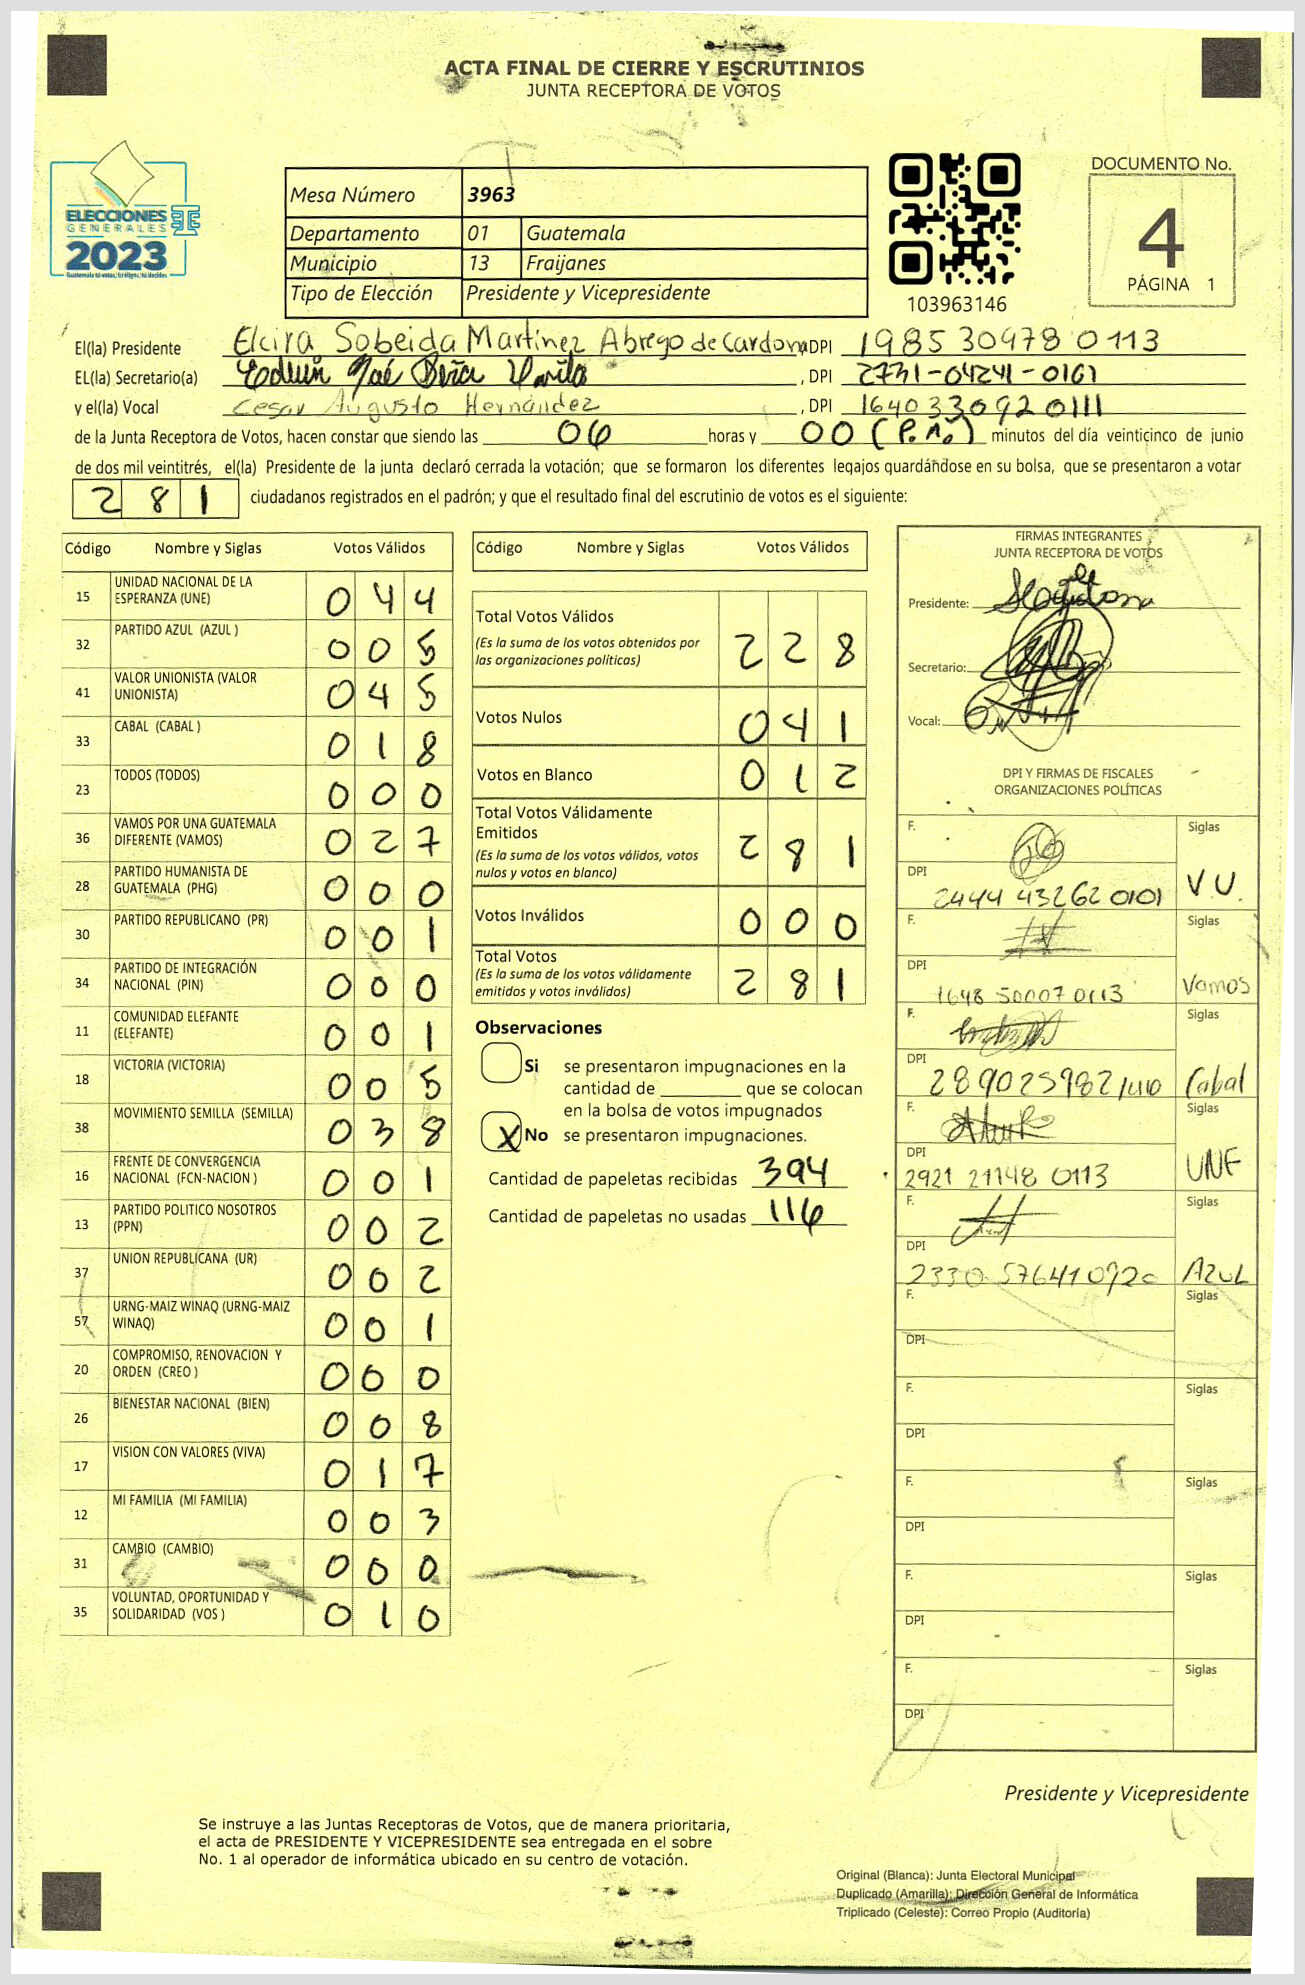 ACTA FINAL DE CIERRE Y ESCRUTINIOS
JUNTA RECEPTORA DE VOTOS
ELECCIONES
GENERALES
2023
Mesa Número 3963
Departamento 01 Guatemala
Municipio 13 Fraijanes
Tipo de Elección Presidente y Vicepresidente
103963146
DOCUMENTO No.
4
PÁGINA 1
El(la) Presidente Elcira Sobeida Martínez Abrego de Cardona DPI 1985 30978 0113
EL(la) Secretario(a) , DPI 2731-04241-0101
y el(la) Vocal Cesar Augusto Hernández , DPI 1640330920111
de la Junta Receptora de Votos, hacen constar que siendo las 06 horas y 00 (P.M.) minutos del día veinticinco de junio
de dos mil veintitrés, el(la) Presidente de la junta declaró cerrada la votación; que se formaron los diferentes legajos guardándose en su bolsa, que se presentaron a votar
281 ciudadanos registrados en el padrón; y que el resultado final del escrutinio de votos es el siguiente:
Código Nombre y Siglas Votos Válidos
15 UNIDAD NACIONAL DE LA ESPERANZA (UNE) 044
32 PARTIDO AZUL (AZUL ) 005
41 VALOR UNIONISTA (VALOR UNIONISTA) 045
33 CABAL (CABAL ) 018
23 TODOS (TODOS) 000
36 VAMOS POR UNA GUATEMALA DIFERENTE (VAMOS) 027
28 PARTIDO HUMANISTA DE GUATEMALA (PHG) 000
30 PARTIDO REPUBLICANO (PR) 001
34 PARTIDO DE INTEGRACIÓN NACIONAL (PIN) 000
11 COMUNIDAD ELEFANTE (ELEFANTE) 001
18 VICTORIA (VICTORIA) 005
38 MOVIMIENTO SEMILLA (SEMILLA) 038
16 FRENTE DE CONVERGENCIA NACIONAL (FCN-NACION ) 001
13 PARTIDO POLITICO NOSOTROS (PPN) 002
37 UNION REPUBLICANA (UR) 002
57 URNG-MAIZ WINAQ (URNG-MAIZ WINAQ) 001
20 COMPROMISO, RENOVACION Y ORDEN (CREO ) 000
26 BIENESTAR NACIONAL (BIEN) 008
17 VISION CON VALORES (VIVA) 017
12 MI FAMILIA (MI FAMILIA) 003
31 CAMBIO (CAMBIO) 000
35 VOLUNTAD, OPORTUNIDAD Y SOLIDARIDAD (VOS ) 010
Código Nombre y Siglas Votos Válidos
Total Votos Válidos 228
(Es la suma de los votos obtenidos por
las organizaciones políticas)
Votos Nulos 041
Votos en Blanco 012
Total Votos Válidamente
Emitidos 281
(Es la suma de los votos válidos, votos
nulos y votos en blanco)
Votos Inválidos 000
Total Votos 281
(Es la suma de los votos válidamente
emitidos y votos inválidos)
Observaciones
Si se presentaron impugnaciones en la
cantidad de ________ que se colocan
en la bolsa de votos impugnados
X No se presentaron impugnaciones.
Cantidad de papeletas recibidas 394
Cantidad de papeletas no usadas 116
FIRMAS INTEGRANTES
JUNTA RECEPTORA DE VOTOS
Presidente:
Secretario:
Vocal:
DPI Y FIRMAS DE FISCALES
ORGANIZACIONES POLÍTICAS
F. Siglas
DPI 2444 43262 0101 V.U.
F. Siglas
DPI 1648 50007 0113 Vamos
F. Siglas
DPI Cabal
F. Siglas
DPI 2921 21148 0113 UNE
F. Siglas
DPI AZUL
F. Siglas
DPI
F. Siglas
DPI
F. Siglas
DPI
F. Siglas
DPI
F. Siglas
DPI
Presidente y Vicepresidente
Se instruye a las Juntas Receptoras de Votos, que de manera prioritaria,
el acta de PRESIDENTE Y VICEPRESIDENTE sea entregada en el sobre
No. 1 al operador de informática ubicado en su centro de votación.
Original (Blanca): Junta Electoral Municipal
Duplicado (Amarilla): Dirección General de Informática
Triplicado (Celeste): Correo Propio (Auditoría)